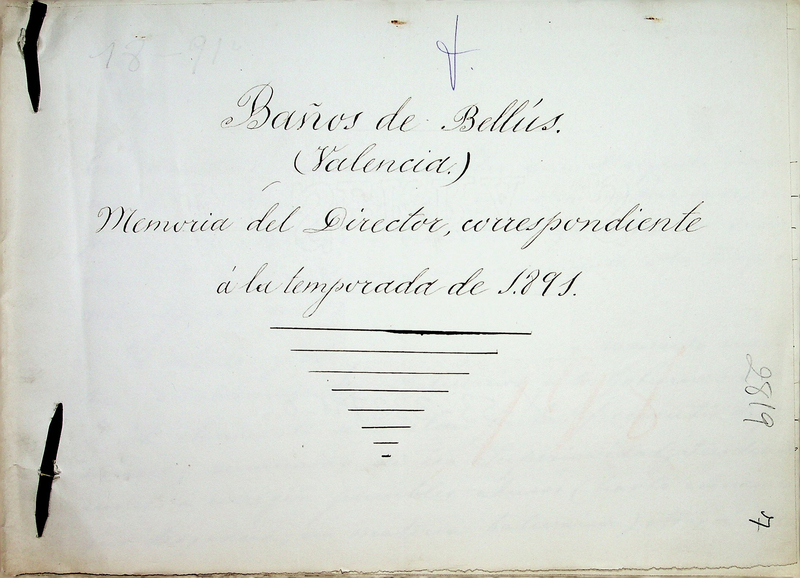 18-91
Baños de Bellús.
(Valencia.)
Memoria del Director, correspondiente
á la temporada de 1.891.
2819